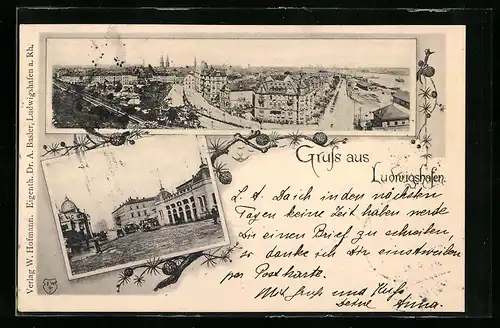 Gruſs aus
Ludwigshafen.
L. A. Da ich in den nächsten
Tagen keine Zeit haben werde
Dir einen Brief zu schreiben,
so danke ich Dir einstweilen
per Postkarte.
Mit Gruss und Kuss
Deine Anna.
Verlag W. Hofmann. Eigenth. Dr. A. Basler, Ludwigshafen a. Rh.